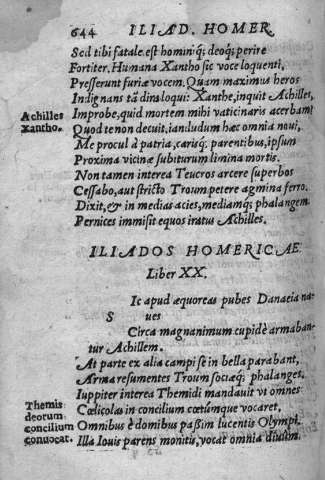 644 ILIAD. HOMER.
Sed tibi fatale est hominiq́; deoq́; perire
Fortiter. Humana Xantho sic voce loquenti,
Presserunt furiæ vocem. Quam maximus heros
Indignans tā dira loqui: Xanthe, inquit Achilles,
Achilles Xantho.
Improbe, quid mortem mihi vaticinaris acerbam?
Quod te non decuit, iandudum hæc omnia noui,
Me procul à patria, carisq́; parentibus, ipsum
Proxima vicinæ subiturum limina mortis.
Non tamen interea Teucros arcere superbos
Cessabo, aut stricto Troum petere agmina ferro.
Dixit, & in medias acies, mediamq́; phalangem
Pernices immisit equos iratus Achilles.
ILIADOS HOMERICAE
Liber XX.
S
Ic apud æquoreas pubes Danaeia na-
ues
Circa magnanimum cupidè armaban-
tur Achillem.
At parte ex alia campi se in bella parabant,
Arma resumentes Troum sociæq́; phalanges.
Iuppiter interea Themidi mandauit vt omnes
Themis deorum concilium conuocat.
Cœlicolas in concilium cœtúmque vocaret,
Omnibus è domibus paßim lucentis Olympi.
Illa Iouis parens monitis, vocat omnia diuûm